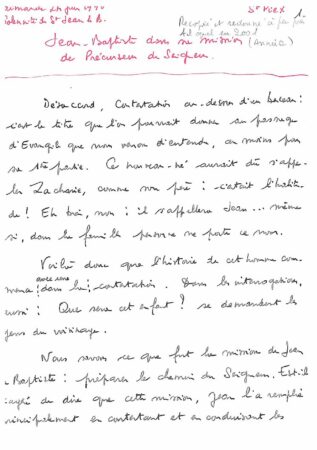 Dimanche 24 juin 1990
Solennité de St Jean le B.
St Vicex 1.
Recopié et redonné à peu près
tel quel en 2001
Jean-Baptiste dans sa mission (Année C)
de Précurseur du Seigneur.
Désaccord, Contestation au-dessus d'un berceau :
c'est le titre que l'on pourrait donner au passage
d'Evangile que nous venons d'entendre, au moins pour
sa 1ère partie. Ce nouveau-né aurait dû s'appe-
ler Zacharie, comme son père : c'était l'habitu-
de ! Eh bien, non : il s'appellera Jean... même
si, dans la famille personne ne porte ce nom.
Voilà donc que l'histoire de cet homme com-
mence dans la contestation. Dans les interrogations,
aussi : Que sera cet enfant ? se demandent les
gens du voisinage.
Nous savons ce que fut la mission de Jean
-Baptiste : préparer les chemins du Seigneur. Est-il
exagéré de dire que cette mission, Jean l'a remplie
principalement en contestant et en conduisant les